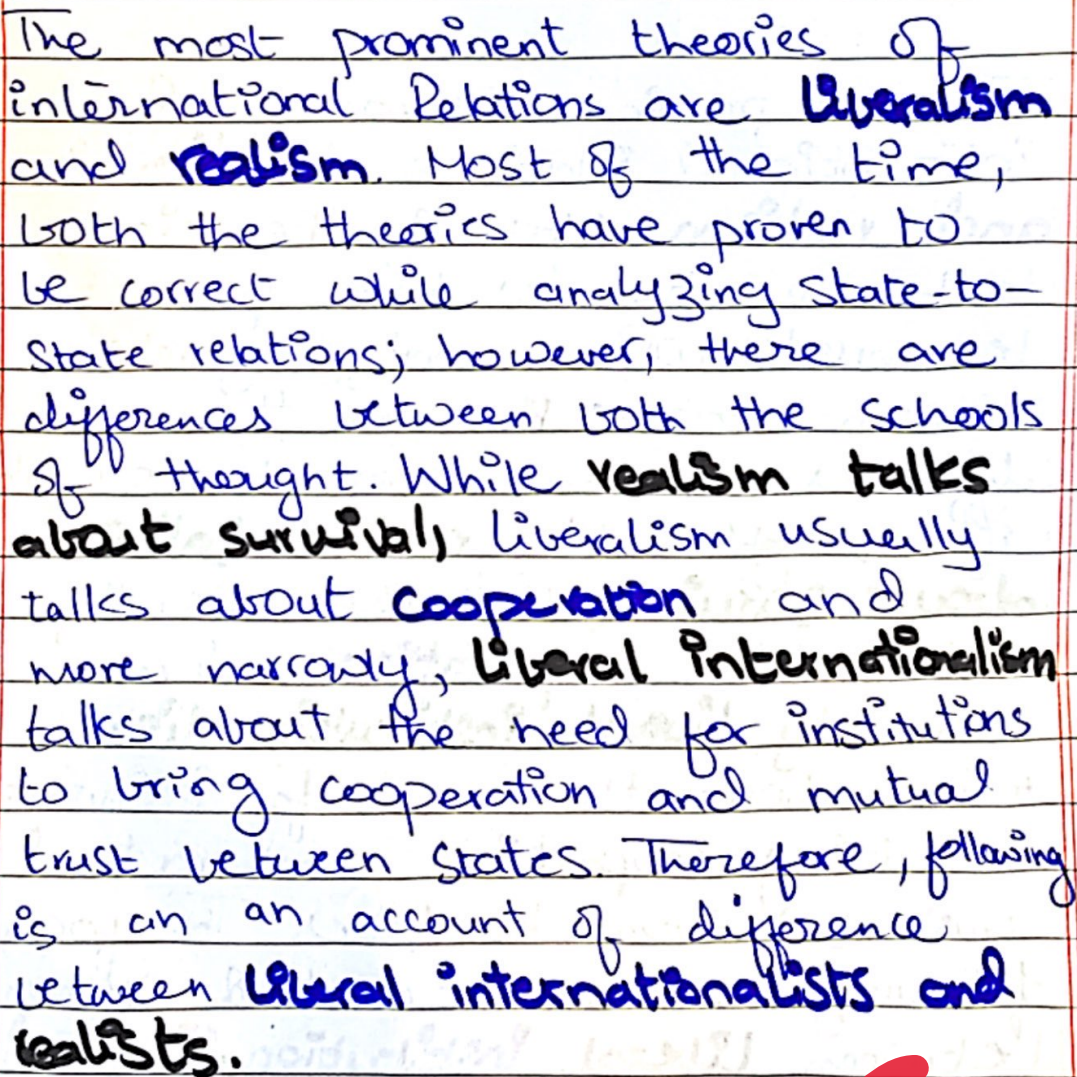 The most prominent theories of
international Relations are liberalism
and realism. Most of the time,
both the theories have proven to
be correct while analyzing State-to-
State relations; however, there are
differences between both the schools
of thought. While realism talks
about survival, liberalism usually
talks about cooperation and
more narrowly, liberal internationalism
talks about the need for institutions
to bring cooperation and mutual
trust between States. Therefore, following
is an an account of difference
between liberal internationalists and
realists.